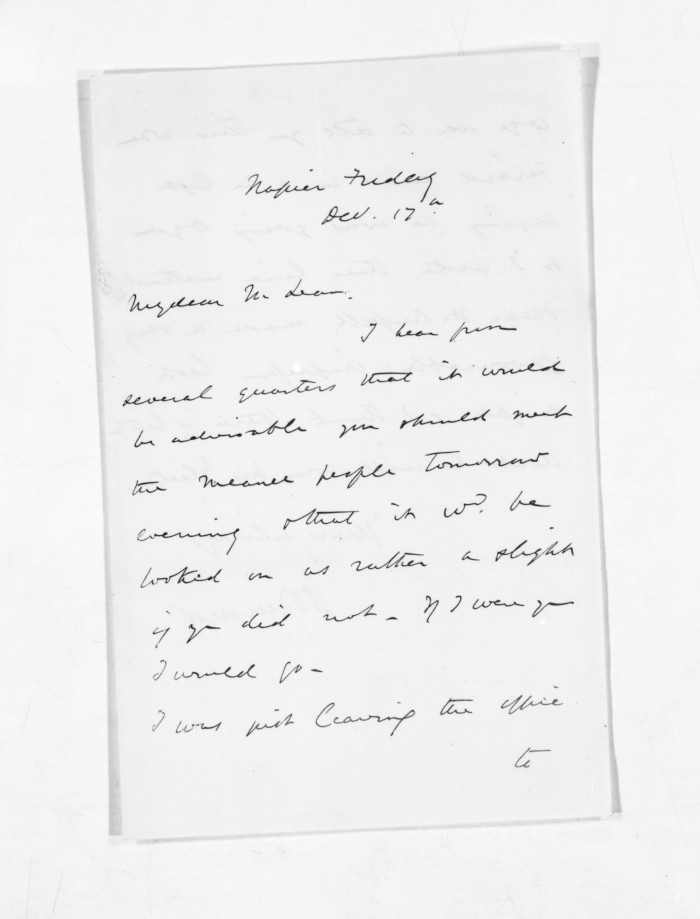 Napier Friday
Dec. 17th.
My dear McLean.
I hear from
several quarters that it would
be advisable you should meet
the Meanee people tomorrow
evening & that it wd. be
looked on as rather a slight
if you did not - If I were you
I would go -
I was just leaving the office
to